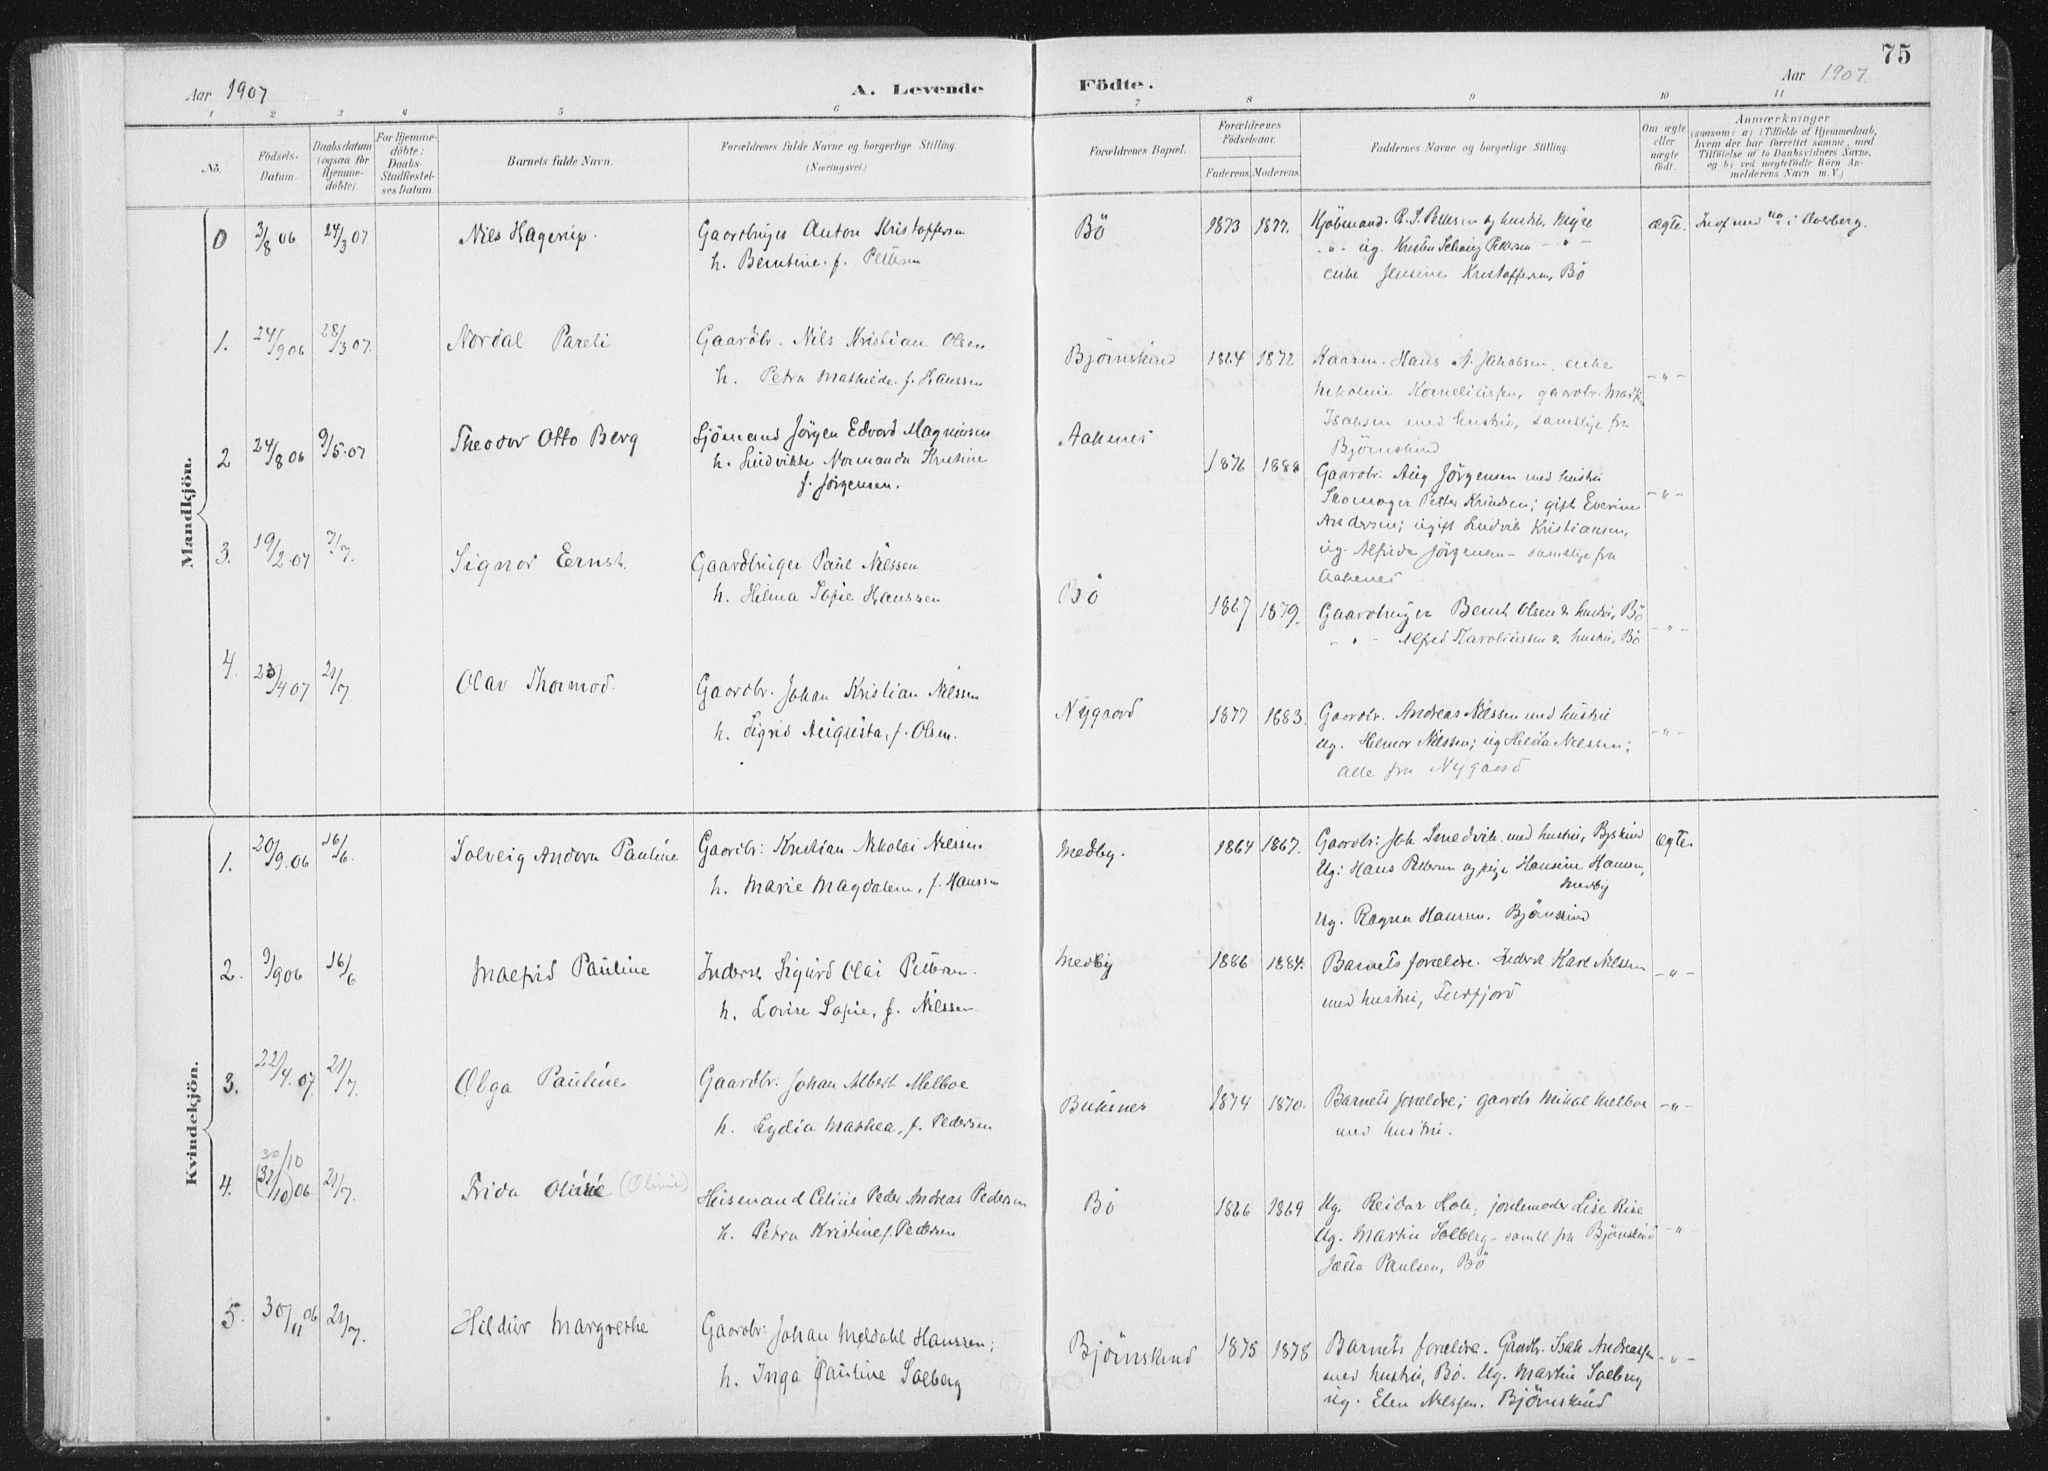 75
Aar 1907
A. Levende
Födte.
Aar 1907.
1 2 3 4 5 6 7 8 9 10 11
No.
Födsels-
Datum.
Daabsdatum
(ogsaa for
Hjemme-
döbte).
For Hjemme-
döbte:
Daabs-
Stadfæstel-
ses Datum.
Barnets fulde Navn.
Forældrenes fulde Navne og borgerlige Stilling.
(Næringsvei.)
Forældrenes Bopæl.
Forældrenes
Födselsaar.
Faderens. Moderens.
Faddernes Navne og borgerlige Stilling.
Om ægte
eller
uægte
födt.
Anmærkninger
(saasom: a) i Tilfælde af Hjemmedaab,
hvem der har forrettet samme, med
Tilföielse af to Daabsvidners Navne,
og b) ved uægtefödte Börn An-
melderens Navn m. V.)
Mandkjön.
0 3/8 06 24/3 07 Nils Hagerup. Gaardbruger Anton Kristoffersen
h. Berntine f. Pettersen
Bö 1873 1877. Kjöbmand R. J. Pettersen og hustru, Myre
-"- ug. Kristen Schøning Pedersen -"-
enke Jensine Kristoffersen, Bö
Ægte. Indf. med No i Dverberg.
1. 24/9 06 28/3 07. Nordal Pareli Gaardbr. Nils Kristian Olsen
h. Petra Mathilde f. Hanssen
Björnskind 1864 1872 Kaarm. Hans A. Jakobsen, enke
Nikoline Korneliussen, gaardbr. Martin
Isaksen med hustru, samtlige fra
Björnskind
-"-
2 24/8 06 9/5 07 Theodor Otto Berg Sjömand Jörgen Edvard Magnussen
h. Ludvikke Normanda Kristine
f. Jörgensen.
Aaknes 1876 1888 Gaardbr. Aug Jörgensen med hustru
Skomager Petter Knudsen; gift Everine
Andersen; ugift Ludvik Kristiansen,
ug. Alfrida Jörgensen - samtlige fra
Aaknes
-"-
3. 19/2 07 7/7. Signor Ernst. Gaardbruger Paul Nilssen
h. Hilma Sofie Hanssen
Bö 1867 1879. Gaardbruger Bernt Olsen & hustru, Bö
-"- Alfred Karoliussen & hustru, Bö
-"-
4. 23/4 07 21/7. Olav Thormod. Gaardbr. Johan Kristian Nilssen
h. Sigrid Augusta, f. Olsen.
Nygaard 1877 1883. Gaardbr. Andreas Nilssen med hustru
Ug. Hilmor Nilssen; ug Hilda Nilssen;
alle fra Nygaard
-"-
Kvindekjön.
1. 20/9. 06 16/6. Solveig Andora Pauline Gaardbr: Kristian Nikolai Nilssen
h. Marie Magdalene, f. Hanssen
Medby. 1864 1867. Gaardbr: Joh Smedvik med hustru, Björskind
Ug: Hans Pettersen og pige Hansine Hansen,
Medby
Ug. Ragna Hansen. Björnskind
Ægte.
2. 9/9 06 16/6 Malfrid Pauline Inderst Sigurd Olai Pettersen.
h. Lovise Sofie, f. Nilssen
Medby 1886 1884. Barnets forældre. Inderst Karl Nilssen
med hustru, Færfjord
-"-
3. 22/4. 07. 21/7. Olga Pauline Gaardbr: Johan Albert Melboe
h. Lydia Mathea, f. Pedersen
Buksnes 1874 1870. Barnets forældre; gaardbr Mikal Melboe
med hustru.
-"-
4. 30/10 (31/10) 06 21/7. Frida Olivie (Olivie) Huismand Celius Peder Andreas Pedersen
h. Petra Kristine f. Pedersen
Bö 1866 1869 Ug. Reidar Holm; jordemoder Lise Rise
Ug. Martin Solberg - samtl fra Björnskind
Jætta Paulsen, Bö
-"-
5. 30/11 06 21/7. Hildur Margrethe Gaardbr: Johan Meldahl Hanssen;
h. Inga Pauline Solberg
Björnskind 1875 1878 Barnets forældre. Gaardbr. Isak Andreassen
med hustru, Bö. Ug. Martin Solberg
ug. Elen Nilssen. Björnskind
-"-